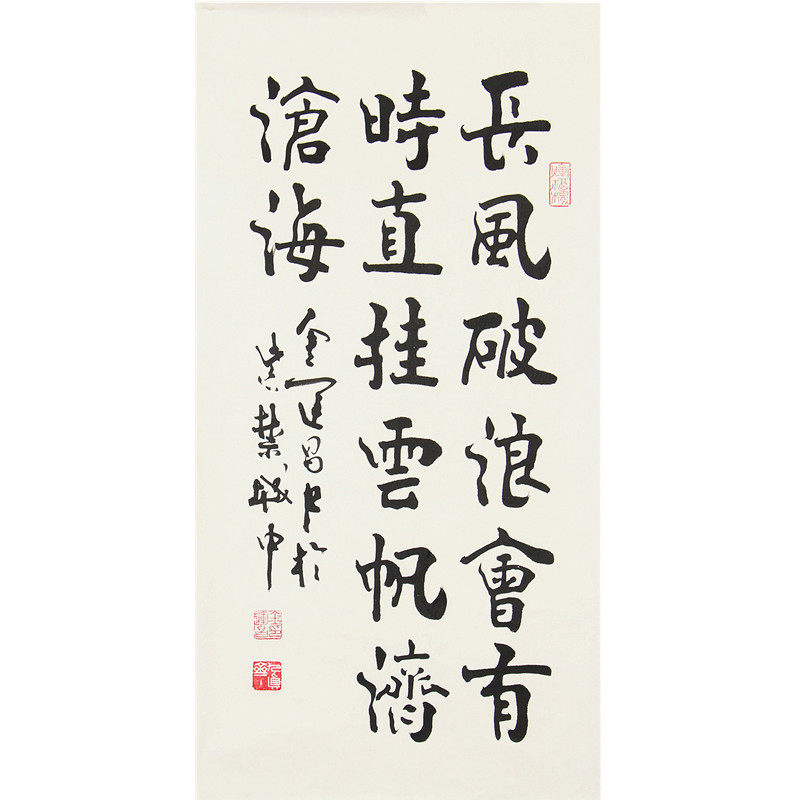 長風破浪會有
時直挂雲帆濟
滄海
金運昌书於
紫禁城中